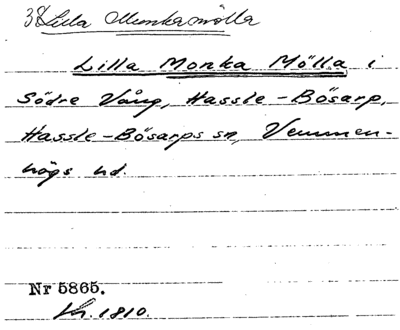 38 Lilla Munkamölla
Lilla Monka Mölla i
Södre Vång, Hassle-Bösarp,
Hassle-Bösarps sn, Vemmen-
högs hd.
Nr 5865.
1810.